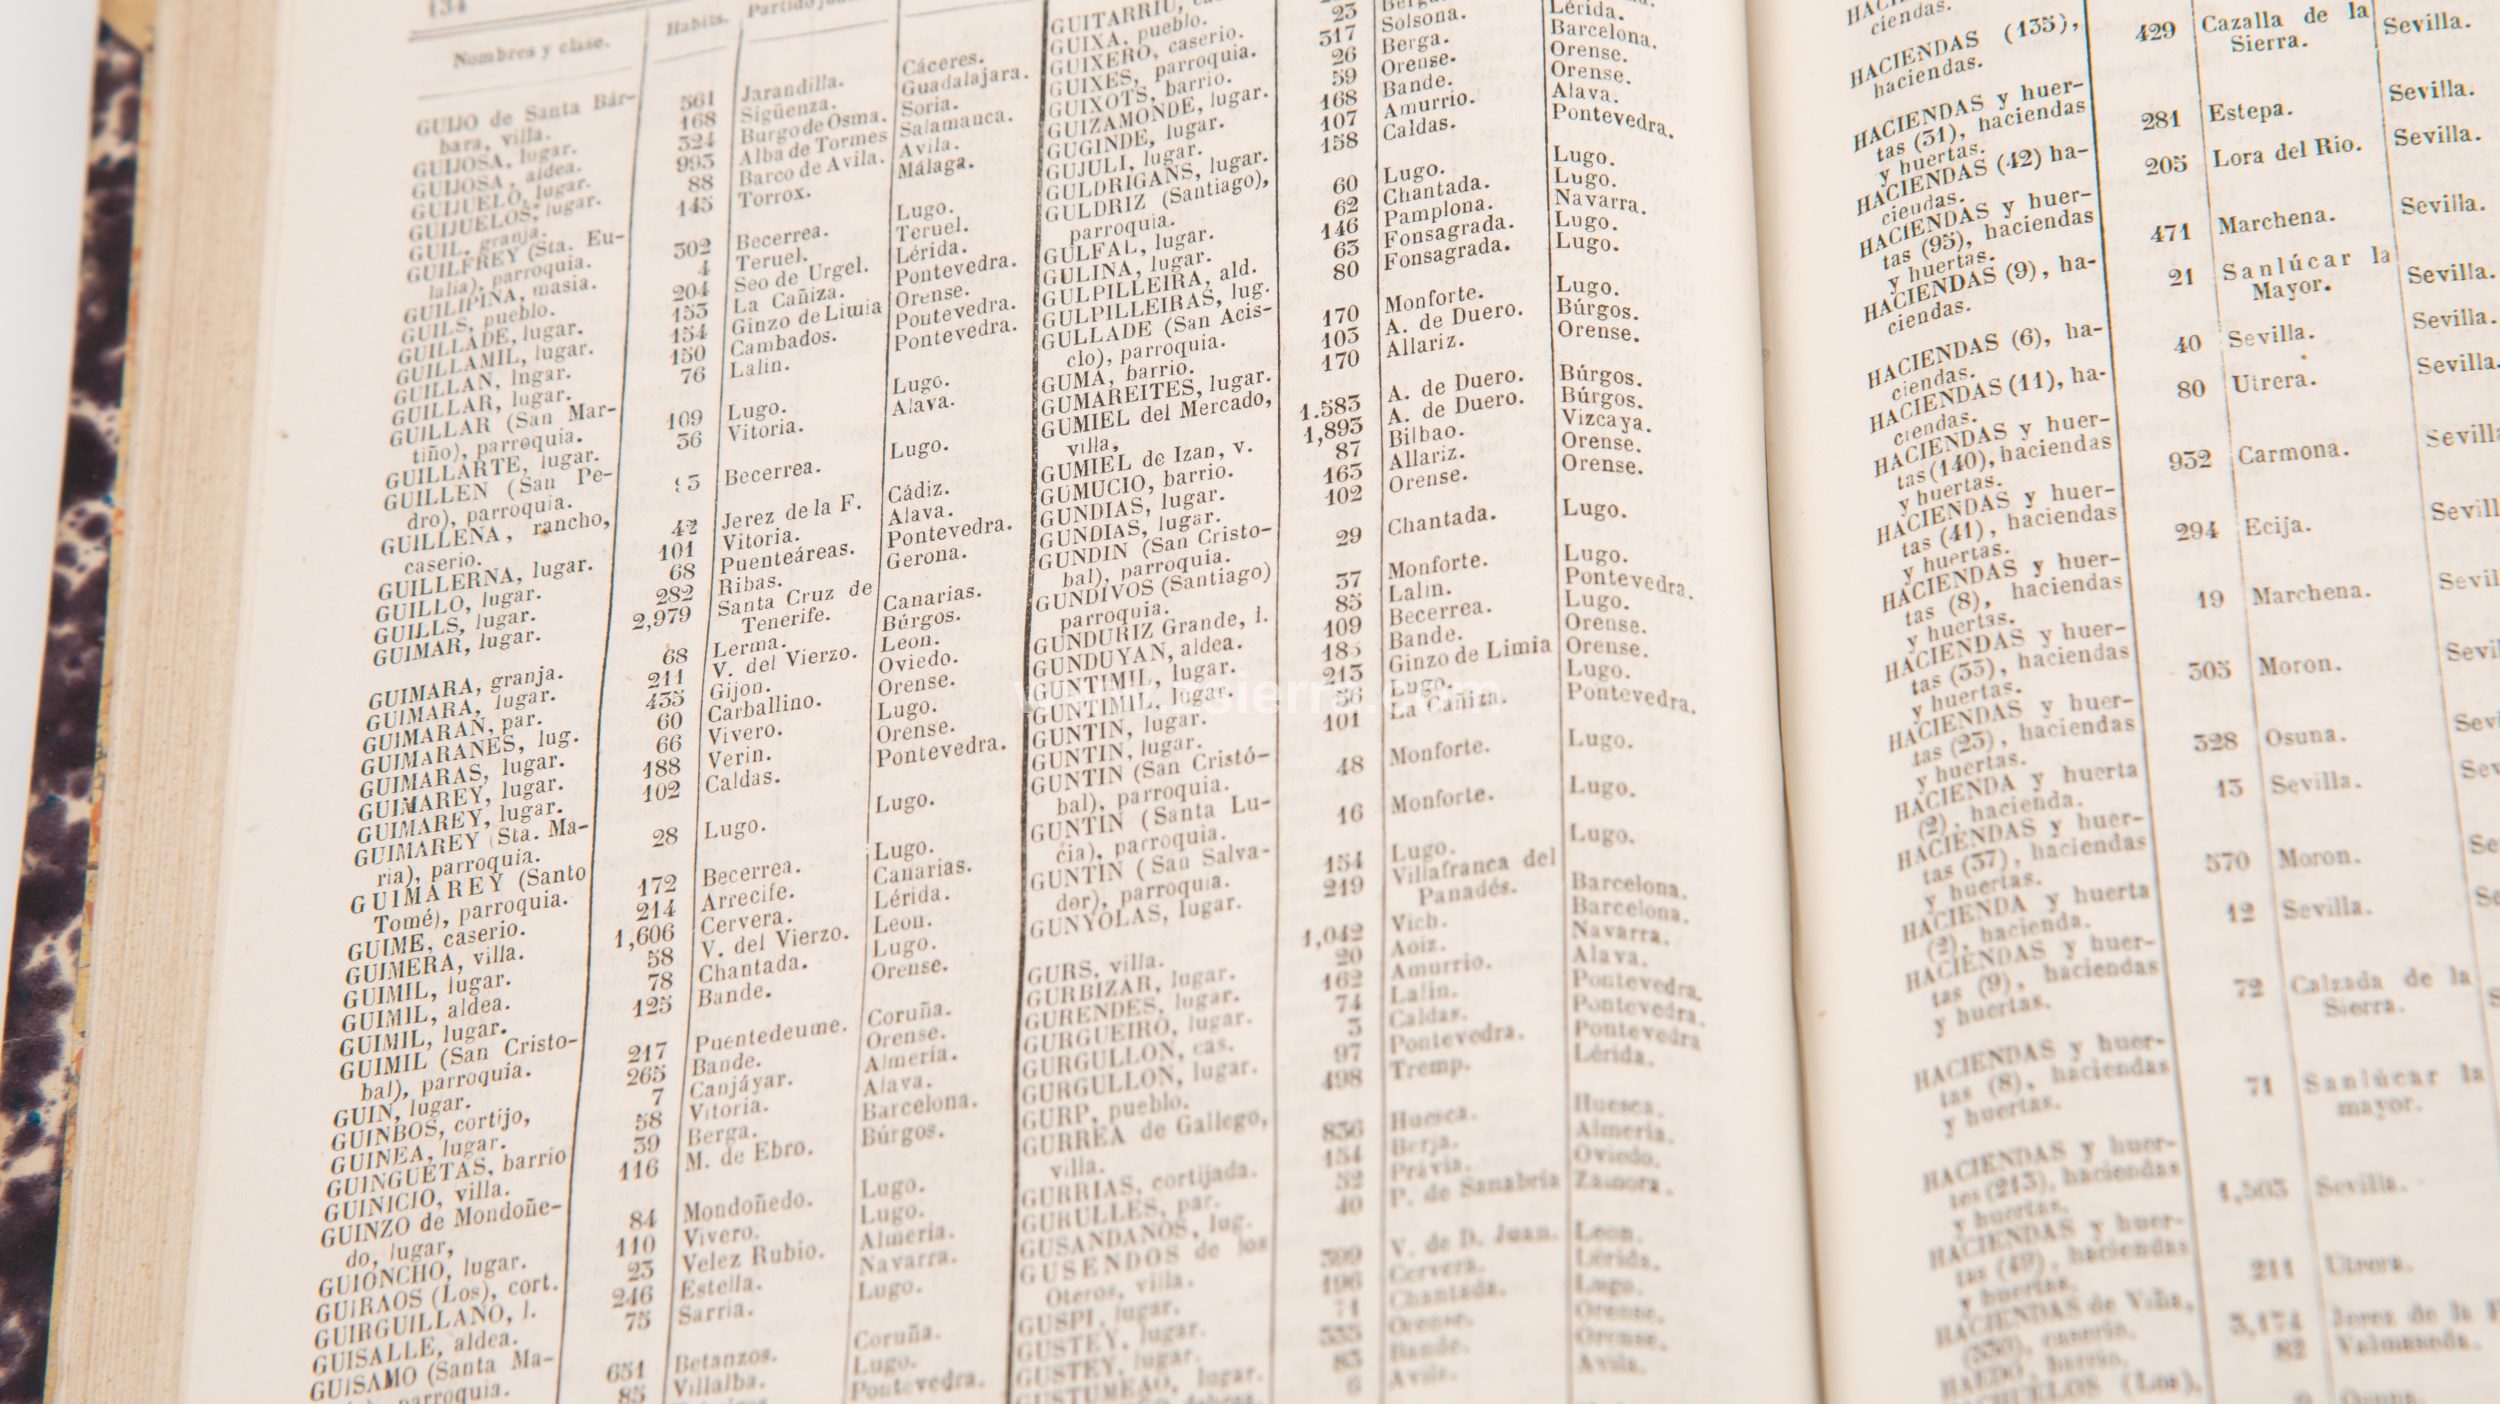 134
Nombres y clase.
Habits.
GUIJO de Santa Bár-
bara, villa. 561 Jarandilla. Cáceres.
GUIJOSA, lugar. 168 Sigüenza. Guadalajara.
GUIJOSA, aldea. 324 Burgo de Osma. Soria.
GUIJUELO, lugar. 993 Alba de Tormes Salamanca.
GUIJUELOS, lugar. 88 Barco de Avila. Avila.
GUIL, granja. 145 Torrox. Málaga.
GUILFREY (Sta. Eu-
lalia), parroquia. 302 Becerrea. Lugo.
GUILIPINA, masia. 4 Teruel. Teruel.
GUILS, pueblo. 204 Seo de Urgel. Lérida.
GUILLADE, lugar. 153 La Cañiza. Pontevedra.
GUILLAMIL, lugar. 154 Ginzo de Limia Orense.
GUILLAN, lugar. 150 Cambados. Pontevedra.
GUILLAR, lugar. 76 Lalin. Pontevedra.
GUILLAR (San Mar-
tiño), parroquia. 109 Lugo. Lugo.
GUILLARTE, lugar. 36 Vitoria. Alava.
GUILLEN (San Pe-
dro), parroquia. Becerrea. Lugo.
GUILLENA, rancho,
caserio. 42 Jerez de la F. Cádiz.
GUILLERNA, lugar. 101 Vitoria. Alava.
GUILLO, lugar. 68 Puenteáreas. Pontevedra.
GUILLS, lugar. 282 Ribas. Gerona.
GUIMAR, lugar. 2,979 Santa Cruz de
Tenerife. Canarias.
GUIMARA, granja. 68 Lerma. Búrgos.
GUIMARA, lugar. 211 V. del Vierzo. Leon.
GUIMARAN, par. 435 Gijon. Oviedo.
GUIMARANES, lug. 60 Carballino. Orense.
GUIMARAS, lugar. 66 Vivero. Lugo.
GUIMAREY, lugar. 188 Verin. Orense.
GUIMAREY, lugar. 102 Caldas. Pontevedra.
GUIMAREY (Sta. Ma-
ria), parroquia. 28 Lugo. Lugo.
GUIMAREY (Santo
Tomé), parroquia. 172 Becerrea. Lugo.
GUIME, caserio. 214 Arrecife. Canarias.
GUIMERA, villa. 1,606 Cervera. Lérida.
GUIMIL, lugar. 58 V. del Vierzo. Leon.
GUIMIL, aldea. 78 Chantada. Lugo.
GUIMIL, lugar. 125 Bande. Orense.
GUIMIL (San Cristo-
bal), parroquia. 217 Puentedeume. Coruña.
GUIN, lugar. 265 Bande. Orense.
GUINBOS, cortijo, 7 Canjáyar. Almería.
GUINEA, lugar. 58 Vitoria. Alava.
GUINGUETAS, barrio 39 Berga. Barcelona.
GUINICIO, villa. 116 M. de Ebro. Búrgos.
GUINZO de Mondoñe-
do, lugar, 84 Mondoñedo. Lugo.
GUIONCHO, lugar. 110 Vivero. Lugo.
GUIRAOS (Los), cort. 23 Velez Rubio. Almeria.
GUIRGUILLANO, l. 246 Estella. Navarra.
GUISALLE, aldea. 75 Sarria. Lugo.
GUISAMO (Santa Ma-
parroquia. 651 Betanzos. Coruña.
85 Villalba. Lugo.
Pontevedra.
GUITARRIU,
GUIXA, pueblo. 23 Lérida.
GUIXERO, caserio. 317 Solsona. Barcelona.
GUIXES, parroquia. 26 Berga. Orense.
GUIXOTS, barrio. 59 Orense. Orense.
GUIZAMONDE, lugar. 168 Bande. Alava.
GUGINDE, lugar. 107 Amurrio. Pontevedra.
GUJULI, lugar. 158 Caldas.
GULDRIGANS, lugar.
GULDRIZ (Santiago),
parroquia. 60 Lugo. Lugo.
GULFAL, lugar. 62 Chantada. Lugo.
GULINA, lugar. 146 Pamplona. Navarra.
GULPILLEIRA, ald. 63 Fonsagrada. Lugo.
GULPILLEIRAS, lug. 80 Fonsagrada. Lugo.
GULLADE (San Acis-
clo), parroquia. 170 Monforte. Lugo.
GUMA, barrio. 103 A. de Duero. Búrgos.
GUMAREITES, lugar. 170 Allariz. Orense.
GUMIEL del Mercado,
villa, 1.583 A. de Duero. Búrgos.
GUMIEL de Izan, v. 1,893 A. de Duero. Búrgos.
GUMUCIO, barrio. 87 Bilbao. Vizcaya.
GUNDIAS, lugar. 163 Allariz. Orense.
GUNDIAS, lugar. 102 Orense. Orense.
GUNDIN (San Cristo-
bal), parroquia. 29 Chantada. Lugo.
GUNDIVOS (Santiago)
parroquia. 37 Monforte. Lugo.
GUNDURIZ Grande, l. 85 Lalin. Pontevedra.
GUNDUYAN, aldea. 109 Becerrea. Lugo.
GUNTIMIL, lugar. Bande. Orense.
GUNTIMIL, lugar. 213 Ginzo de Limia Orense.
GUNTIN, lugar. 56 Lugo. Lugo.
GUNTIN, lugar. 101 La Cañiza. Pontevedra.
GUNTIN (San Cristó-
bal), parroquia. 48 Monforte. Lugo.
GUNTIN (Santa Lu-
cia), parroquia. 16 Monforte. Lugo.
GUNTIN (San Salva-
dor), parroquia. 154 Lugo. Lugo.
GUNYOLAS, lugar. 219 Villafranca del
Panadés. Barcelona.
GURS, villa. 1,042 Vich. Barcelona.
GURBIZAR, lugar. 20 Aoiz. Navarra.
GURENDES, lugar. 162 Amurrio. Alava.
GURGUEIRO, lugar. 74 Lalin. Pontevedra.
GURGULLON, cas. 3 Caldas. Pontevedra.
GURGULLON, lugar. 97 Pontevedra. Pontevedra
GURP, pueblo. 498 Tremp. Lérida.
GURREA de Gallego,
villa. 836 Huesca. Huesca.
GURRIAS, cortijada. 154 Berja. Almería.
GURULLES, par. 52 Právia. Oviedo.
GUSANDANOS, lug. 40 P. de Sanabria Zamora.
GUSENDOS de los
Oteros, villa. 399 V. de D. Juan. Leon.
GUSPI, lugar. 196 Cervera. Lérida.
GUSTEY, lugar. 71 Chantada. Lugo.
GUSTEY, lugar. 335 Orense. Orense.
GUSTUMEAO, lugar. 83 Bande. Orense.
6 Avila. Avila.
www. sierra.com
ciendas.
HACIENDAS (135),
haciendas. 429 Cazalla de la
Sierra. Sevilla.
HACIENDAS y huer-
tas (31), haciendas
y huertas. 281 Estepa. Sevilla.
HACIENDAS (42) ha-
ciendas. 205 Lora del Rio. Sevilla.
HACIENDAS y huer-
tas (95), haciendas
y huertas. 471 Marchena. Sevilla.
HACIENDAS (9), ha-
ciendas. 21 Sanlúcar la
Mayor. Sevilla.
HACIENDAS (6), ha-
ciendas. 40 Sevilla. Sevilla.
HACIENDAS (11), ha-
ciendas. 80 Utrera. Sevilla.
HACIENDAS y huer-
tas (140), haciendas
y huertas. 932 Carmona. Sevilla
HACIENDAS y huer-
tas (41), haciendas
y huertas. 294 Ecija. Sevill
HACIENDAS y huer-
tas (8), haciendas
y huertas. 19 Marchena. Sevil
HACIENDAS y huer-
tas (33), haciendas
y huertas. 305 Moron. Sevi
HACIENDAS y huer-
tas (23), haciendas
y huertas. 328 Osuna. Sev
HACIENDA y huerta
(2), hacienda. 13 Sevilla. Sev
HACIENDAS y huer-
tas (37), haciendas
y huertas. 570 Moron. Se
HACIENDA y huerta
(2), hacienda. 12 Sevilla. Se
HACIENDAS y huer-
tas (9), haciendas
y huertas. 72 Calzada de la
Sierra. S
HACIENDAS y huer-
tas (8), haciendas
y huertas. 71 Sanlúcar la
mayor.
HACIENDAS y huer-
tas (213), haciendas
y huertas. 1,503 Sevilla.
HACIENDAS y huer-
tas (49), haciendas
y huertas. 211 Utrera.
HACIENDAS de Viña,
(330), caserío. 3,174 Jerez de la F
HAEDO, barrio. 82 Valmaseda.
(Los), Osuna.